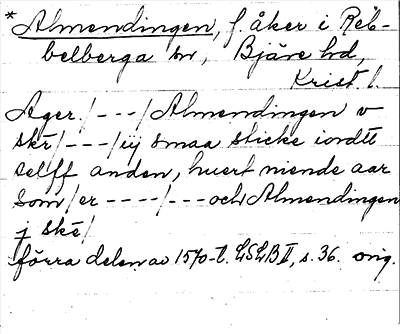 *Almendingen, f. åker i Reb-
belberga sn, Bjäre hd,
Krist. l.
Ager /---/ Almendingen v
skr /---/ iij smaa sticke iordtt
selff anden, huert niende aar
som /er ----/---och Almendingen
j ske/
förra delen av 1570-t. LSLB II, s. 36. orig.